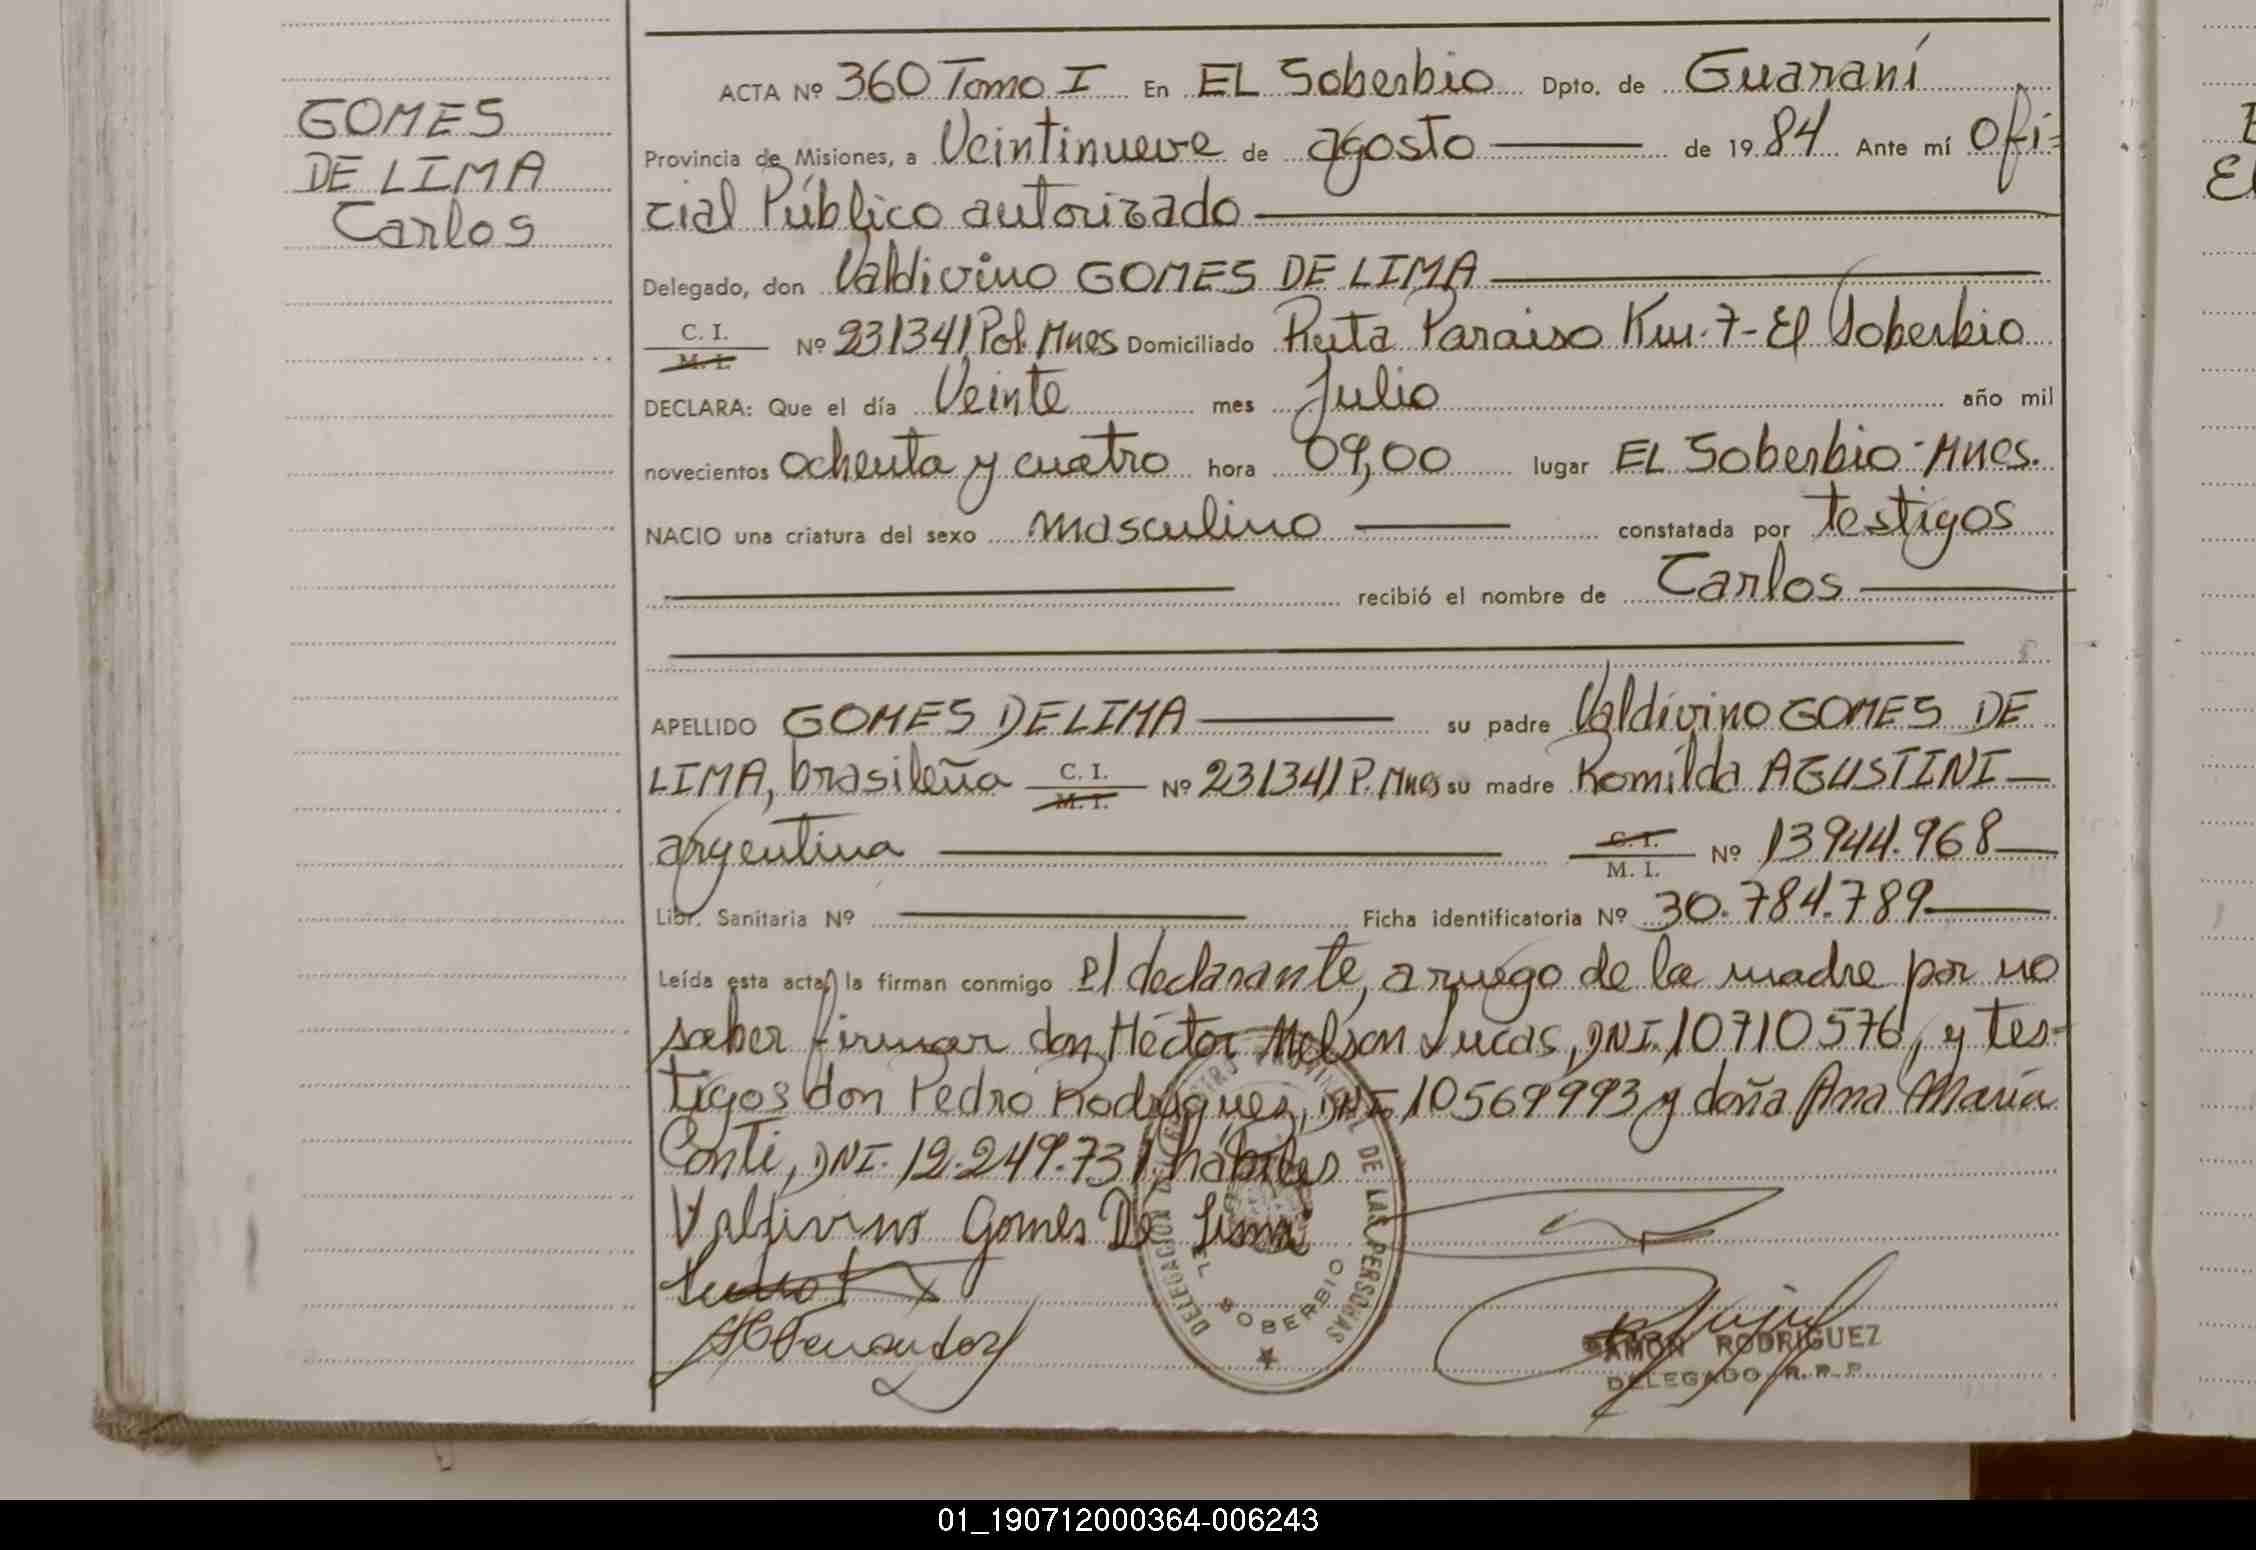 GOMES
DE LIMA
Carlos
ACTA Nº 360 Tomo I En EL Soberbio Dpto. de Guaraní
Provincia de Misiones, a Veintinueve de agosto de 1984 Ante mí Ofi=
cial Público autorizado
Delegado, don Valdivino GOMES DE LIMA
C. I.
M. I.
Nº 231341 Pol. Mnes Domiciliado Ruta Paraiso Km. 7- El Soberbio
DECLARA: Que el día Veinte mes Julio año mil
novecientos ochenta y cuatro hora 09,00 lugar EL Soberbio - Mnes.
NACIO una criatura del sexo masculino constatada por testigos
recibió el nombre de Carlos
APELLIDO GOMES DE LIMA su padre Valdivino GOMES DE
LIMA, brasileña C. I. M. I. Nº 231341 P. Mnes su madre Romilda AGUSTINI
argentina C. I. M. I. Nº 13944.968
Libr. Sanitaria Nº Ficha identificatoria Nº 30.784.789
Leída esta acta, la firman conmigo el declarante, a ruego de la madre por no
saber firmar don Héctor Nelson Lucas, DNI. 10710576, y tes-
tigos don Pedro Rodriguez, DNI. 10569993 y doña Ana María
Conti, DNI. 12.249.731 hábiles
Valdivino Gomes De Lima
DELEGACION REGISTRO PROVINCIAL DE LAS PERSONAS
EL SOBERBIO
RAMON RODRIGUEZ
DELEGADO R. P. P.
E
El
01_190712000364-006243